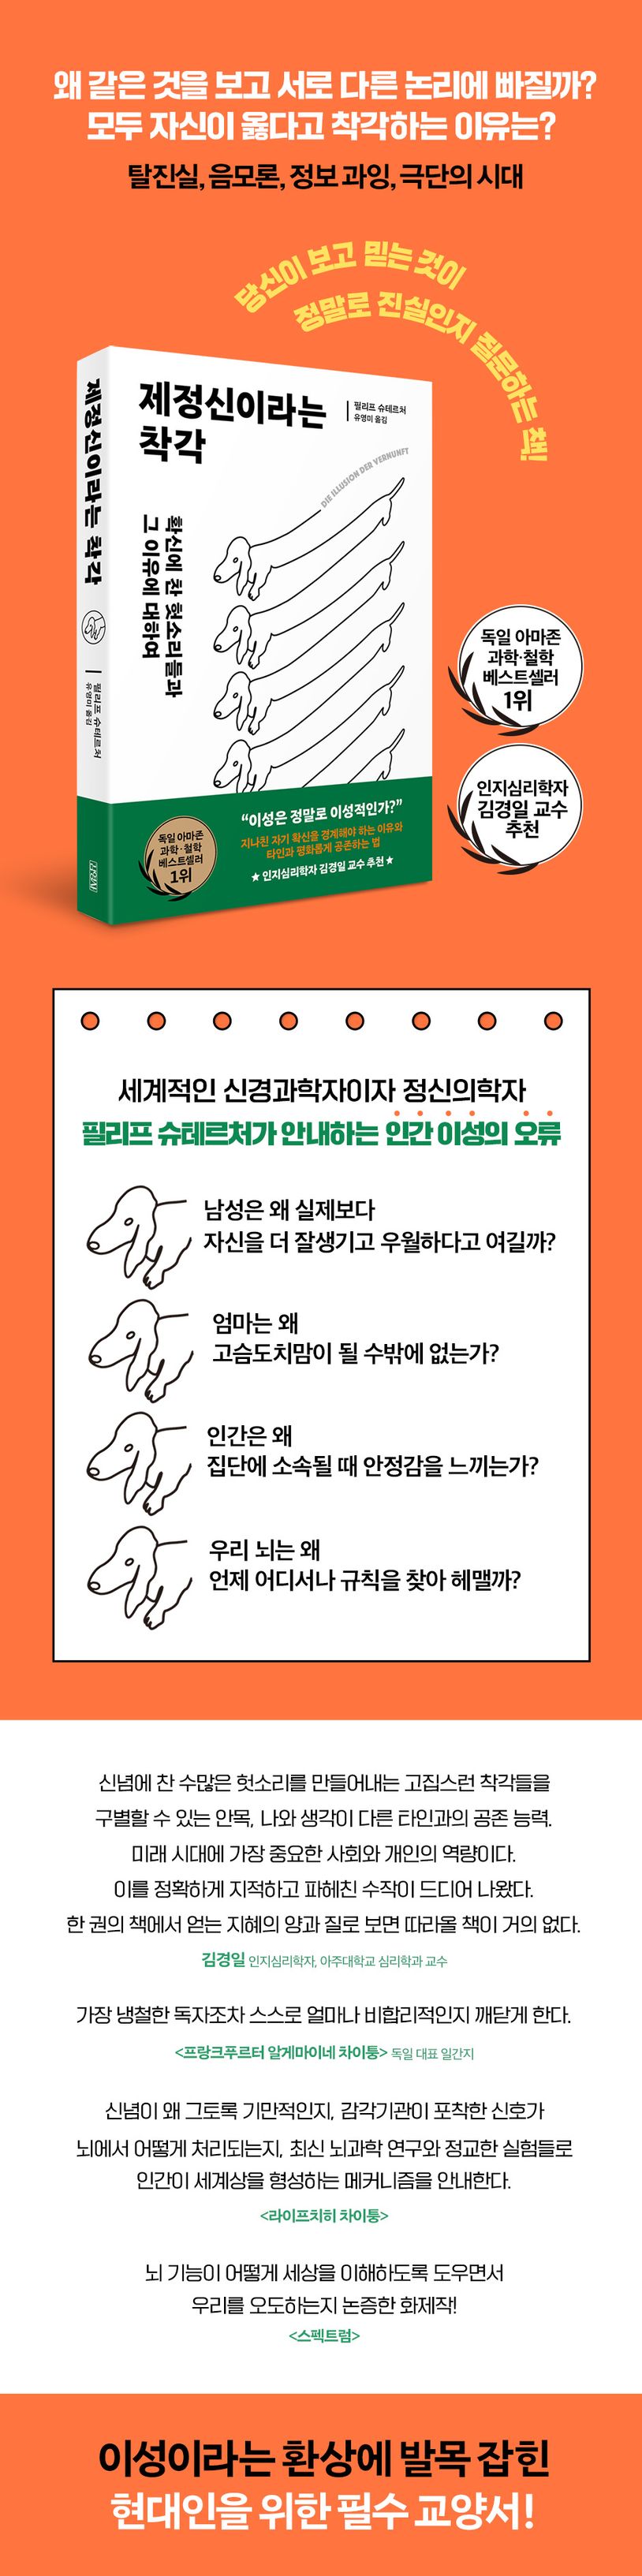 왜 같은 것을 보고 서로 다른 논리에 빠질까?
모두 자신이 옳다고 착각하는 이유는?
탈진실, 음모론, 정보 과잉, 극단의 시대
당신이 보고 믿는 것이
정말로 진실인지 질문하는 책!
제정신이라는 착각
필리프 슈테르처
유영미 옮김
제정신이라는
착각
필리프 슈테르처
유영미 옮김
DIE ILLUSION DER VERNUNFT
확신에 찬 헛소리들과
그 이유에 대하여
독일 아마존
과학·철학
베스트셀러
1위
인지심리학자
김경일 교수
추천
독일 아마존
과학·철학
베스트셀러
1위
“이성은 정말로 이성적인가?”
지나친 자기 확신을 경계해야 하는 이유와
타인과 평화롭게 공존하는 법
★ 인지심리학자 김경일 교수 추천 ★
세계적인 신경과학자이자 정신의학자
필리프 슈테르처가 안내하는 인간 이성의 오류
남성은 왜 실제보다
자신을 더 잘생기고 우월하다고 여길까?
엄마는 왜
고슴도치맘이 될 수밖에 없는가?
인간은 왜
집단에 소속될 때 안정감을 느끼는가?
우리 뇌는 왜
언제 어디서나 규칙을 찾아 헤맬까?
신념에 찬 수많은 헛소리를 만들어내는 고집스런 착각들을
구별할 수 있는 안목, 나와 생각이 다른 타인과의 공존 능력.
미래 시대에 가장 중요한 사회와 개인의 역량이다.
이를 정확하게 지적하고 파헤친 수작이 드디어 나왔다.
한 권의 책에서 얻는 지혜의 양과 질로 보면 따라올 책이 거의 없다.
김경일 인지심리학자, 아주대학교 심리학과 교수
가장 냉철한 독자조차 스스로 얼마나 비합리적인지 깨닫게 한다.
<프랑크푸르터 알게마이네 차이퉁> 독일 대표 일간지
신념이 왜 그토록 기만적인지, 감각기관이 포착한 신호가
뇌에서 어떻게 처리되는지, 최신 뇌과학 연구와 정교한 실험들로
인간이 세계상을 형성하는 메커니즘을 안내한다.
<라이프치히 차이퉁>
뇌 기능이 어떻게 세상을 이해하도록 도우면서
우리를 오도하는지 논증한 화제작!
<스펙트럼>
이성이라는 환상에 발목 잡힌
현대인을 위한 필수 교양서!